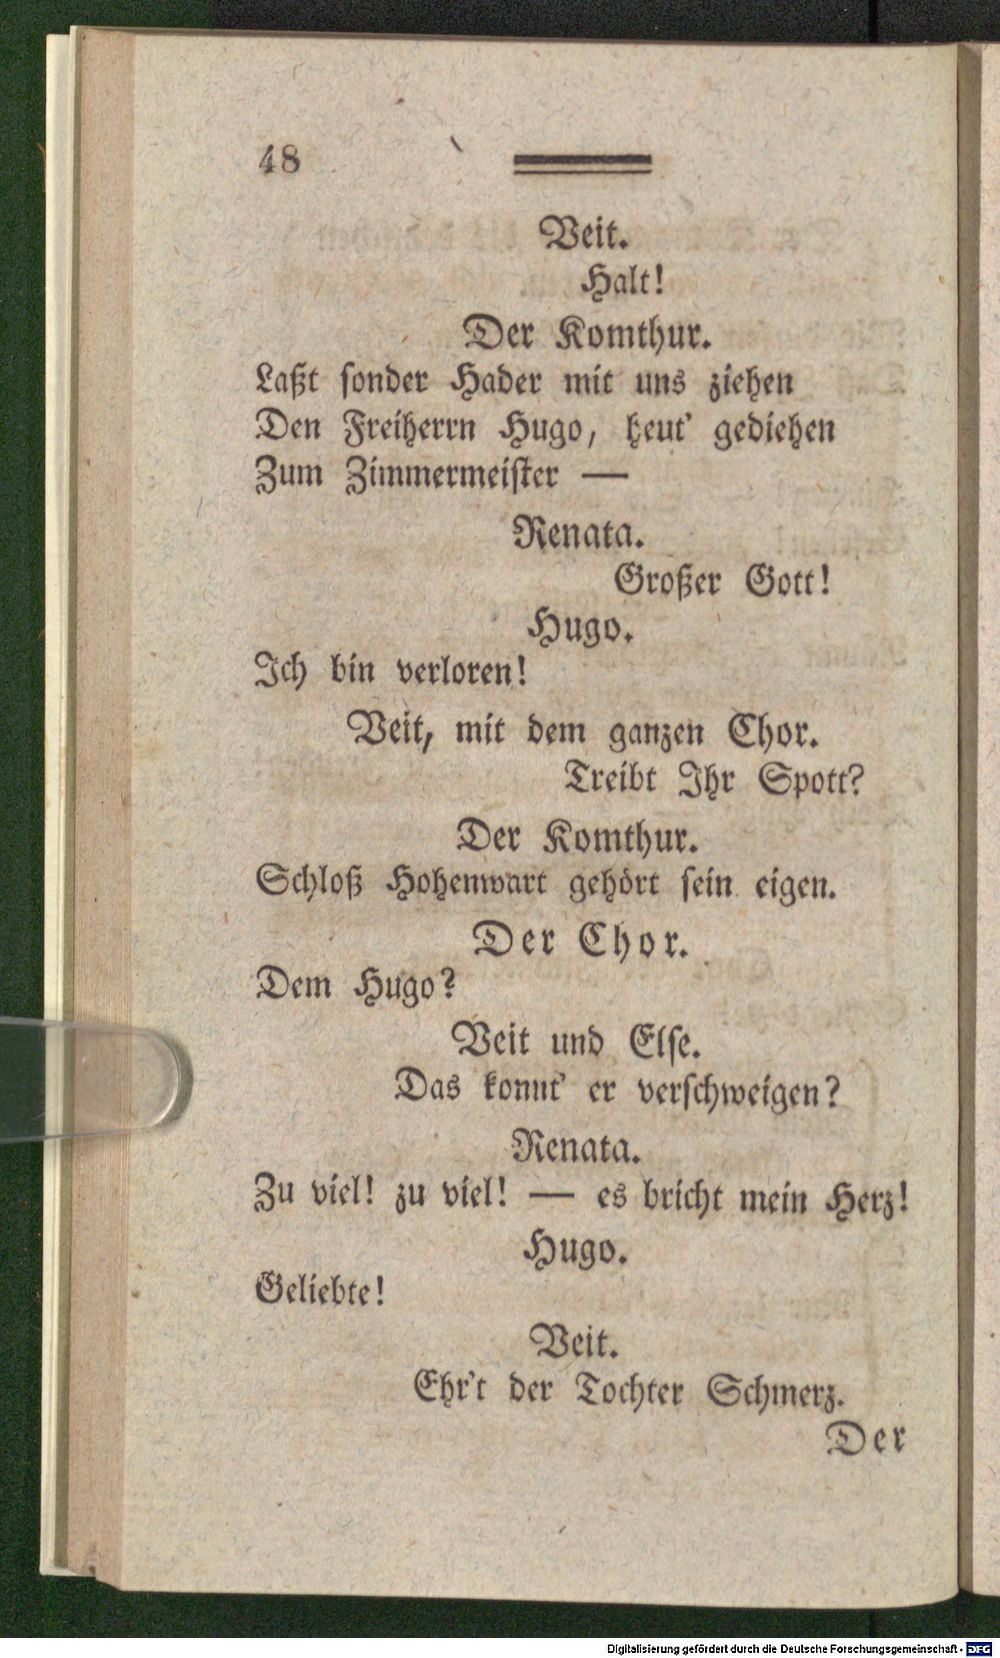 48
Veit.
Halt!
Der Komthur.
Laßt sonder Hader mit uns ziehen
Den Freiherrn Hugo, heut' gediehen
Zum Zimmermeister —
Renata.
Großer Gott!
Hugo.
Ich bin verloren!
Veit, mit dem ganzen Chor.
Treibt Ihr Spott?
Der Komthur.
Schloß Hohenwart gehört sein eigen.
Der Chor.
Dem Hugo?
Veit und Else.
Das konnt' er verschweigen?
Renata.
Zu viel! zu viel! — es bricht mein Herz!
Hugo.
Geliebte!
Veit.
Ehr't der Tochter Schmerz.
Der
Digitalisierung gefördert durch die Deutsche Forschungsgemeinschaft - DFG